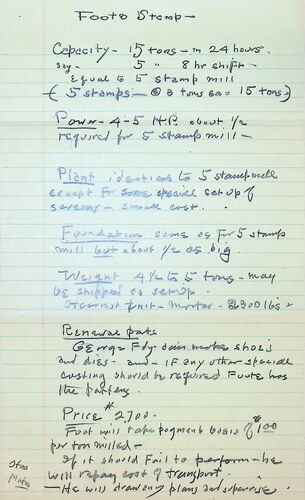 Foote Stamp -
Capacity - 15 tons - in 24 hours.
say - 5 " 8 hr shift -
Equal to 5 stamp mill
(5 stamps - @ 3 tons ea = 15 tons)
Power - 4-5 H.P. about 1/2
required for 5 stamp mill -
Plant identical to 5 stamp mill
except for some special set up of
screens - small cost.
Foundation same as for 5 stamp
mill but about 1/2 as big.
Weight 4 1/2 to 5 tons - may
be shipped as setup.
Heaviest unit - mortar - 2300 lbs
Renewal parts
George Fdy - makes shoes
and dies - and - if any other special
casting should be required Foote has
the pattern.
Price $2700.
Foot will take payment basis of $1.00
per ton milled -
If it should fail to perform - he
will repay cost of transport.
- He will draw my plans and supervise.
Notes